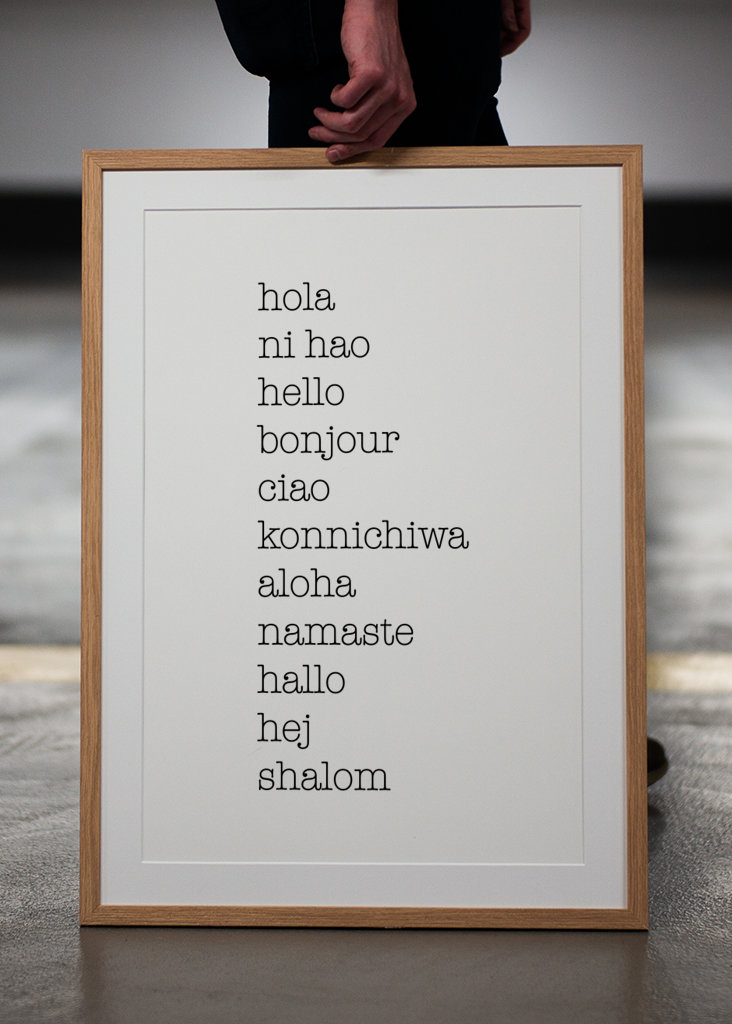 hola
ni hao
hello
bonjour
ciao
konnichiwa
aloha
namaste
hallo
hej
shalom